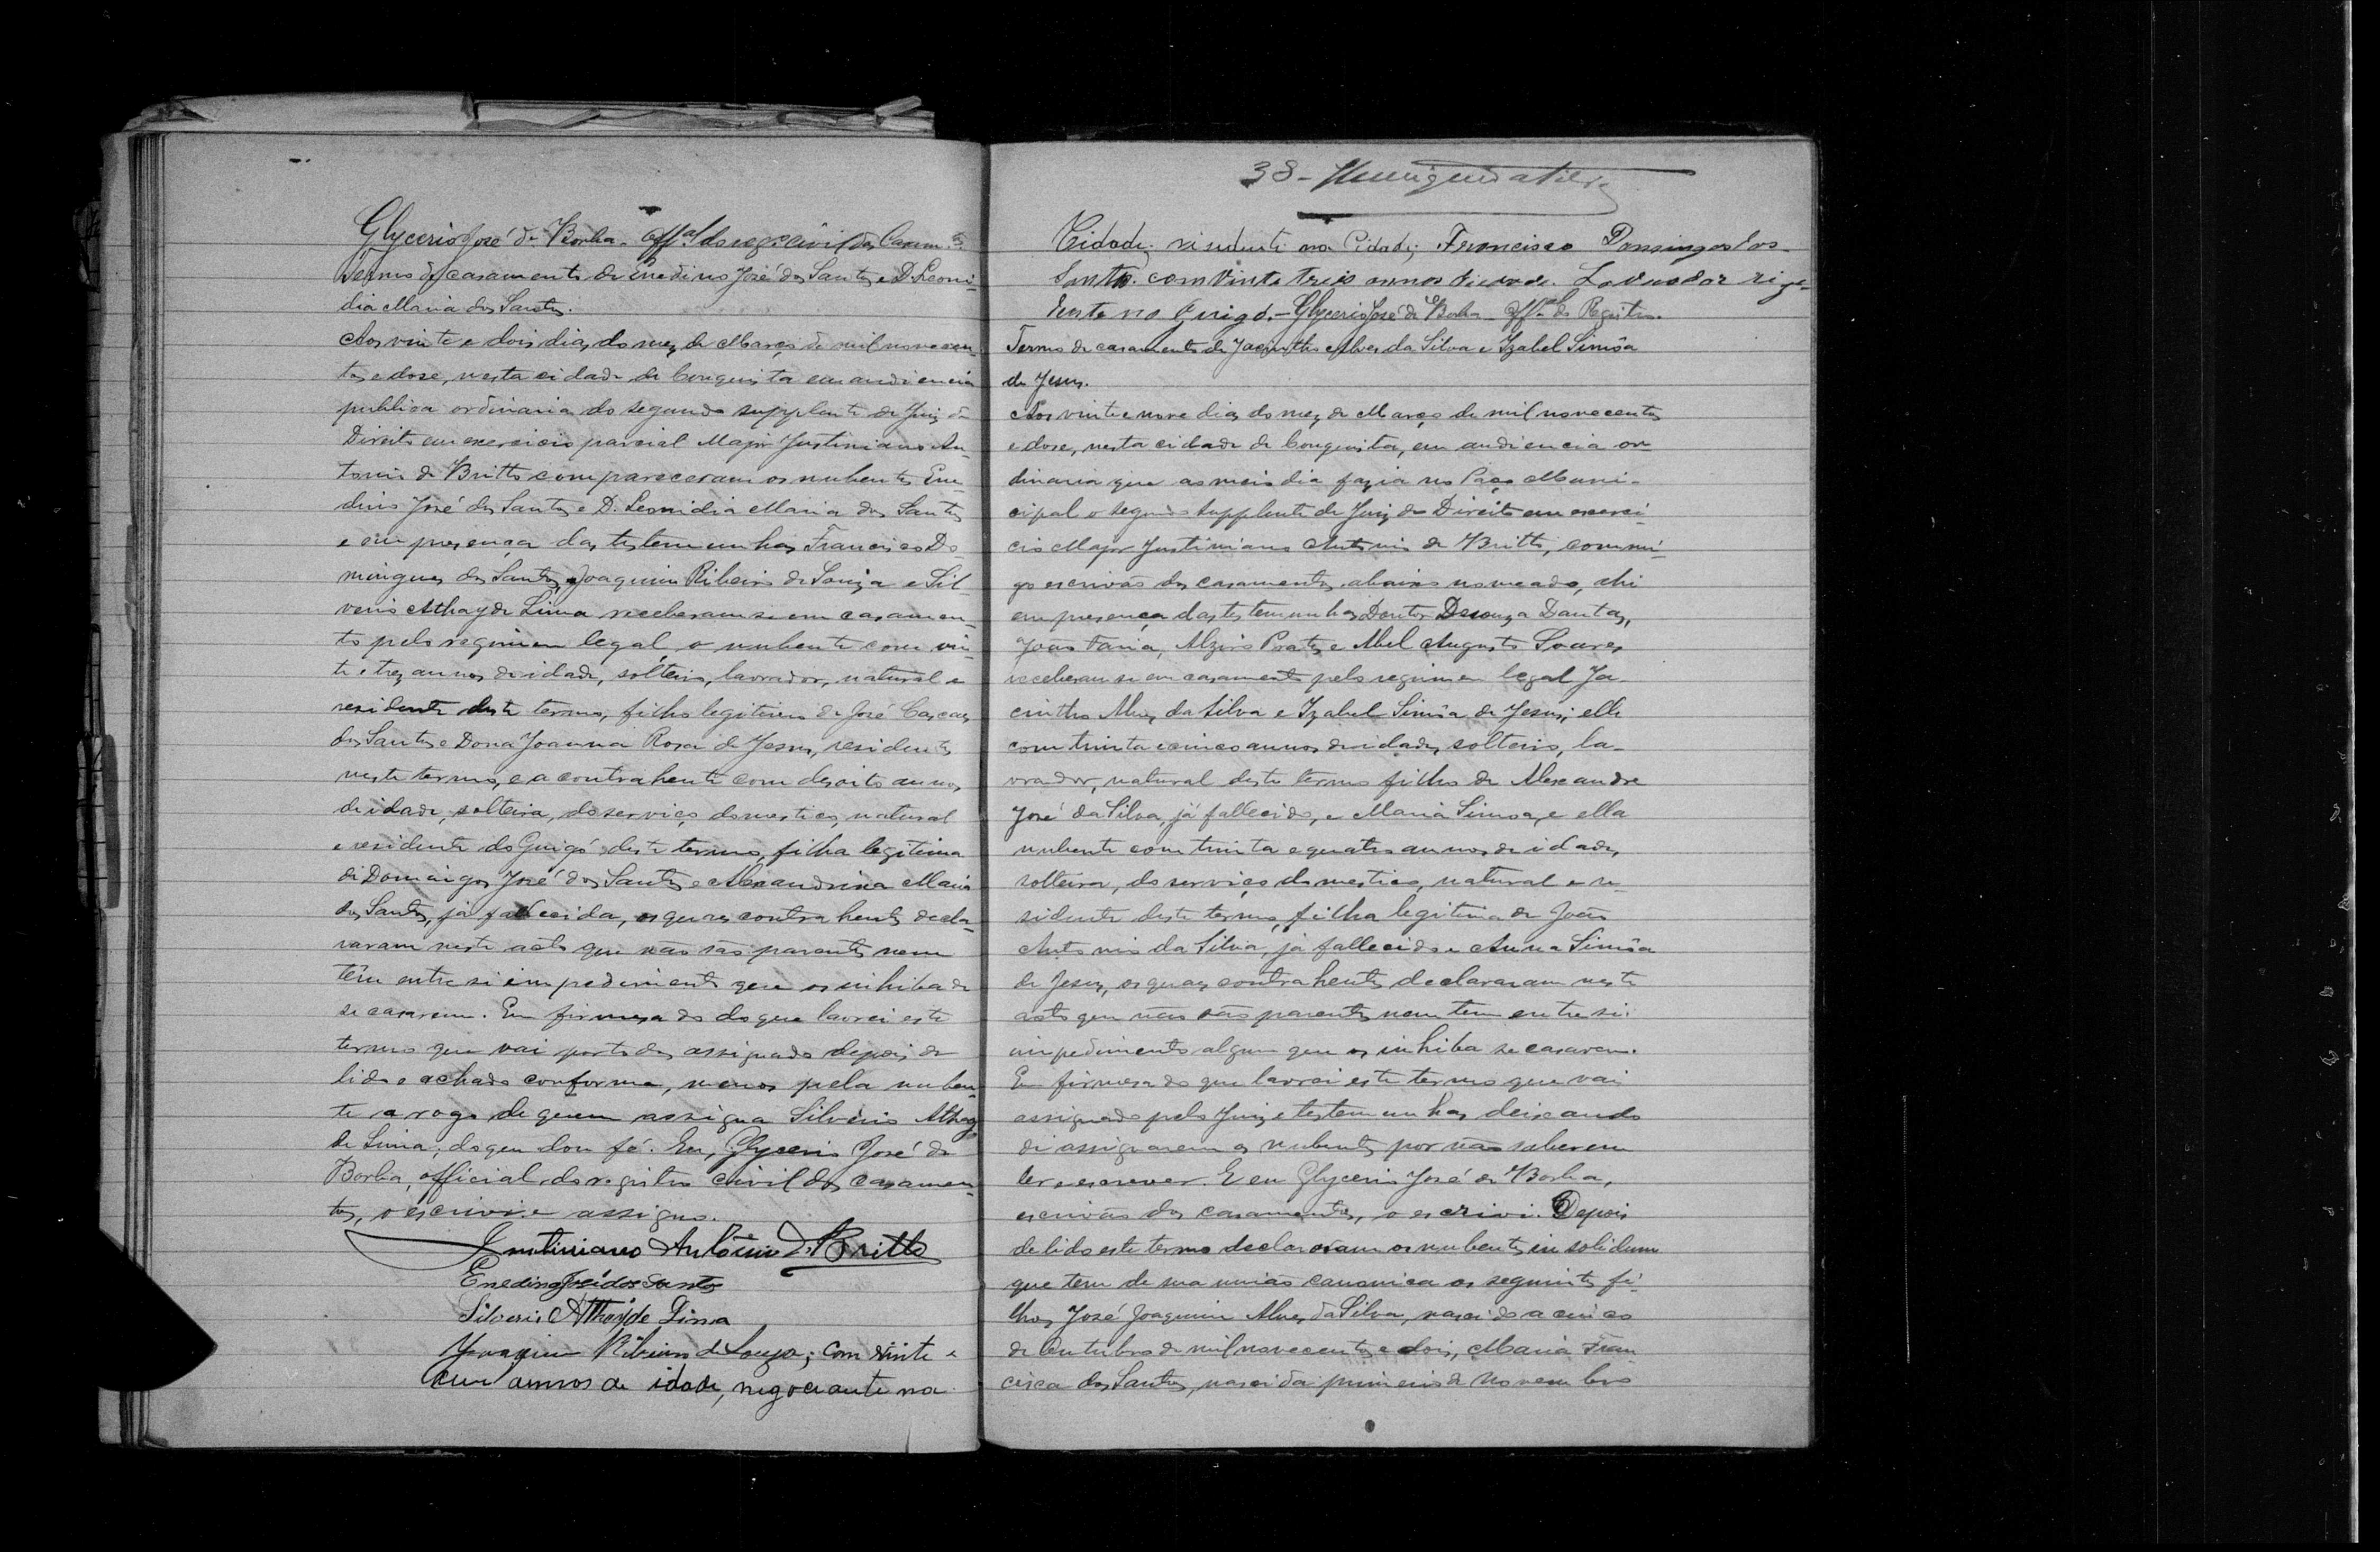 Glycerio José de Borba. Off.al do reg.º civil dos Casam.tos
Termo de casamento de Enedino José dos Santos e D. Leoni-
dia Maria dos Santos.
Aos vinte e dois dias do mez de Março de mil novecen-
tos e dose, nesta cidade de Conquista em audiencia
publica ordinaria do segundo supplente de Juiz de
Direito em exercicio parcial Major Justiniano An-
tonio de Britto compareceram os nubentes Ene-
dino José dos Santos e D. Leonidia Maria dos Santos
e em presença das testemunhas Francisco Do-
mingues dos Santos, Joaquim Ribeiro de Souza e Sil-
verio Athayde Lima receberam-se em casamen-
to pelo regimen legal, o nubente com vin-
te e trez annos de idade, solteiro, lavrador, natural e
residente deste termo, filho legitimo de José Cascaes
dos Santos e Dona Joanna Rosa de Jesus, residentes
neste termo, e a contrahente com desoito annos
de idade, solteira, do serviço domestico, natural
e residente do Guigó deste termo, filha legitima
de Domingos José dos Santos e Alexandrina Maria
dos Santos, já fallecida, os quaes contrahentes decla-
raram neste acto que não são parentes nem
têm entre si impedimento que os inhiba de
se casarem. Em firmesa do do que lavrei este
termo que vai por todos assignado depois de
lido e achado conforme, menos pela nuben-
te a rogo de quem assigna Silverio Athay
de Lima, do que dou fé. Eu, Glycerio José de
Borba, official do registro civil dos casamen-
tos, o escrivi e assigno.
Justiniano Antônio de Britto
Enedino José dos Santos
Silverio Athayde Lima
Joaquim Ribeiro de Souza; com vinte e
um annos de idade, negociante na
38 -
Cidade; residente na Cidade; Francisco Domingos dos
Santos. com Vinte treis annos de idade. Lavrador rizi-
dente no Guigó. - Glycerio José de Borba - Off.al do Registro.
Termo de casamento de Jacintho Alves da Silva e Izabel Simôa
de Jesus.
Aos vinte e nove dias do mez de Março de mil novecentos
e dose, nesta cidade de Conquista, em audiencia or-
dinaria que ao meio dia fazia no Paço Muni-
cipal o segundo supplente de Juiz de Direito em exerci-
cio Major Justiniano Antonio de Britto, commi-
go escrivão dos casamentos, abaixo nomeado, ahi
em presença das testemunhas Doutor Desouza Dantas,
João Faria, Alziro Prates e Abel Augusto Soares
receberam-se em casamento pelo regimen legal Ja-
cintho Alves da Silva e Izabel Simôa de Jesus; elle
com trinta e cinco annos de idade, solteiro, la-
vrador, natural deste termo filho de Alexandre
José da Silva, já fallecido, e Maria Simoa, e ella
nubente com trinta e quatro annos de idade,
solteira, do serviço domestico, natural e re-
sidente deste termo, filha legitima de João
Antonio da Silva, já fallecido e Anna Simôa
de Jesus, os quaes contrahentes declararam neste
acto que não são parentes nem tem entre si
impedimento algum que os inhiba se casarem.
Em firmesa do que lavrei este termo que vai
assignado pelo Juiz e testemunhas deixando
de assignarem os nubentes por não saberem
ler e escrever. E eu Glycerio José de Borba,
escrivão dos casamentos, o escrivi. Depois
de lido este termo declararam os nubentes in solidum
que tem de sua união canonica os seguintes fi-
lhos, José Joaquim Alves da Silva, nascido a cinco
de Outubro de mil novecentos e dois, Maria Fran-
cisca dos Santos, nascida primeiro de Novembro